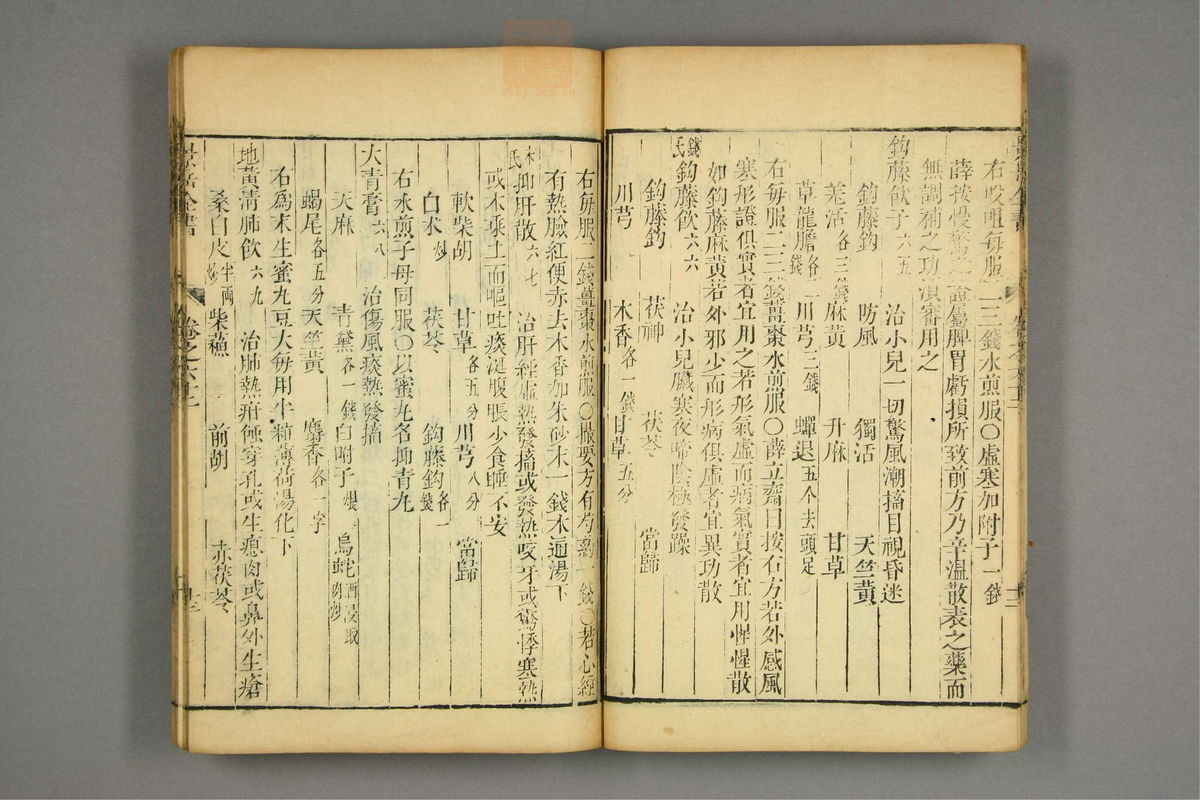 右㕮咀每服二三錢水煎服〇虛寒加附子一錢
薛按慢驚之證屬脾胃虧損所致前方乃辛溫散表之藥而
無調補之功須審用之
鈎藤飲子六五 治小兒一切驚風潮搐目視昏迷
鈎藤鈎 防風 獨活 天竺黃
羌活各三錢 麻黃 升麻 甘草
草龍膽各二錢 川芎三錢 蟬退五个去頭足
右每服二三錢薑棗水煎服〇薛立齋曰按右方若外感風
寒形證俱實者宜用之若形氣虛而病氣實者宜用惺惺散
如鈎藤麻黃若外邪少而形病俱虛者宜異功散
錢氏鈎藤飲六六 治小兒臟寒夜啼陰極發躁
鈎藤鈎 茯神 茯苓 當歸
川芎 木香各一錢 甘草五分
右每服二錢薑棗水煎服〇撮要方有芍藥一錢〇若心經
有熱臉紅便赤去木香加朱砂末一錢木通湯下
宋氏抑肝散六七 治肝經虛熱發搐或發熱咬牙或驚悸寒熱
或木乘土而嘔吐痰涎腹脹少食睡不安
軟柴胡 甘草各五分 川芎八分 當歸
白朮炒 茯苓 鈎藤鈎各一錢
右水煎子母同服〇以蜜丸名抑青丸
大青膏六八 治傷風痰熱發搐
天麻 青黛各一錢 白附子煨 烏蛇酒浸取肉炒
蝎尾各五分 天竺黃 麝香各一字
右為末生蜜丸豆大每用半粒薄荷湯化下
地黃清肺飲六九 治肺熱疳蝕穿孔或生瘜肉或鼻外生瘡
桑白皮半兩炒 柴蘇 前胡 赤茯苓